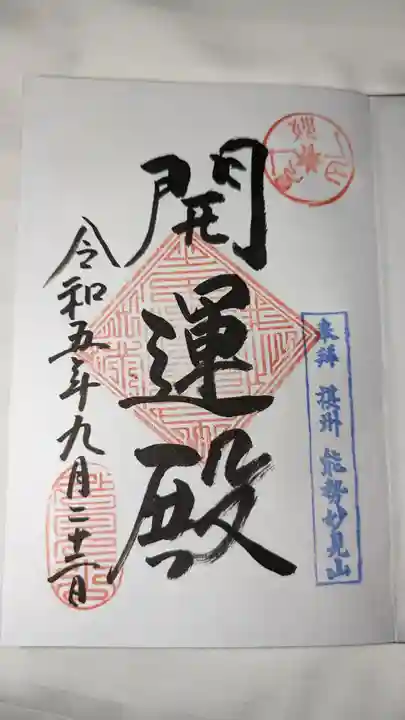 奉拝 摂州 能勢妙見山
開運殿
令和五年九月二十二日